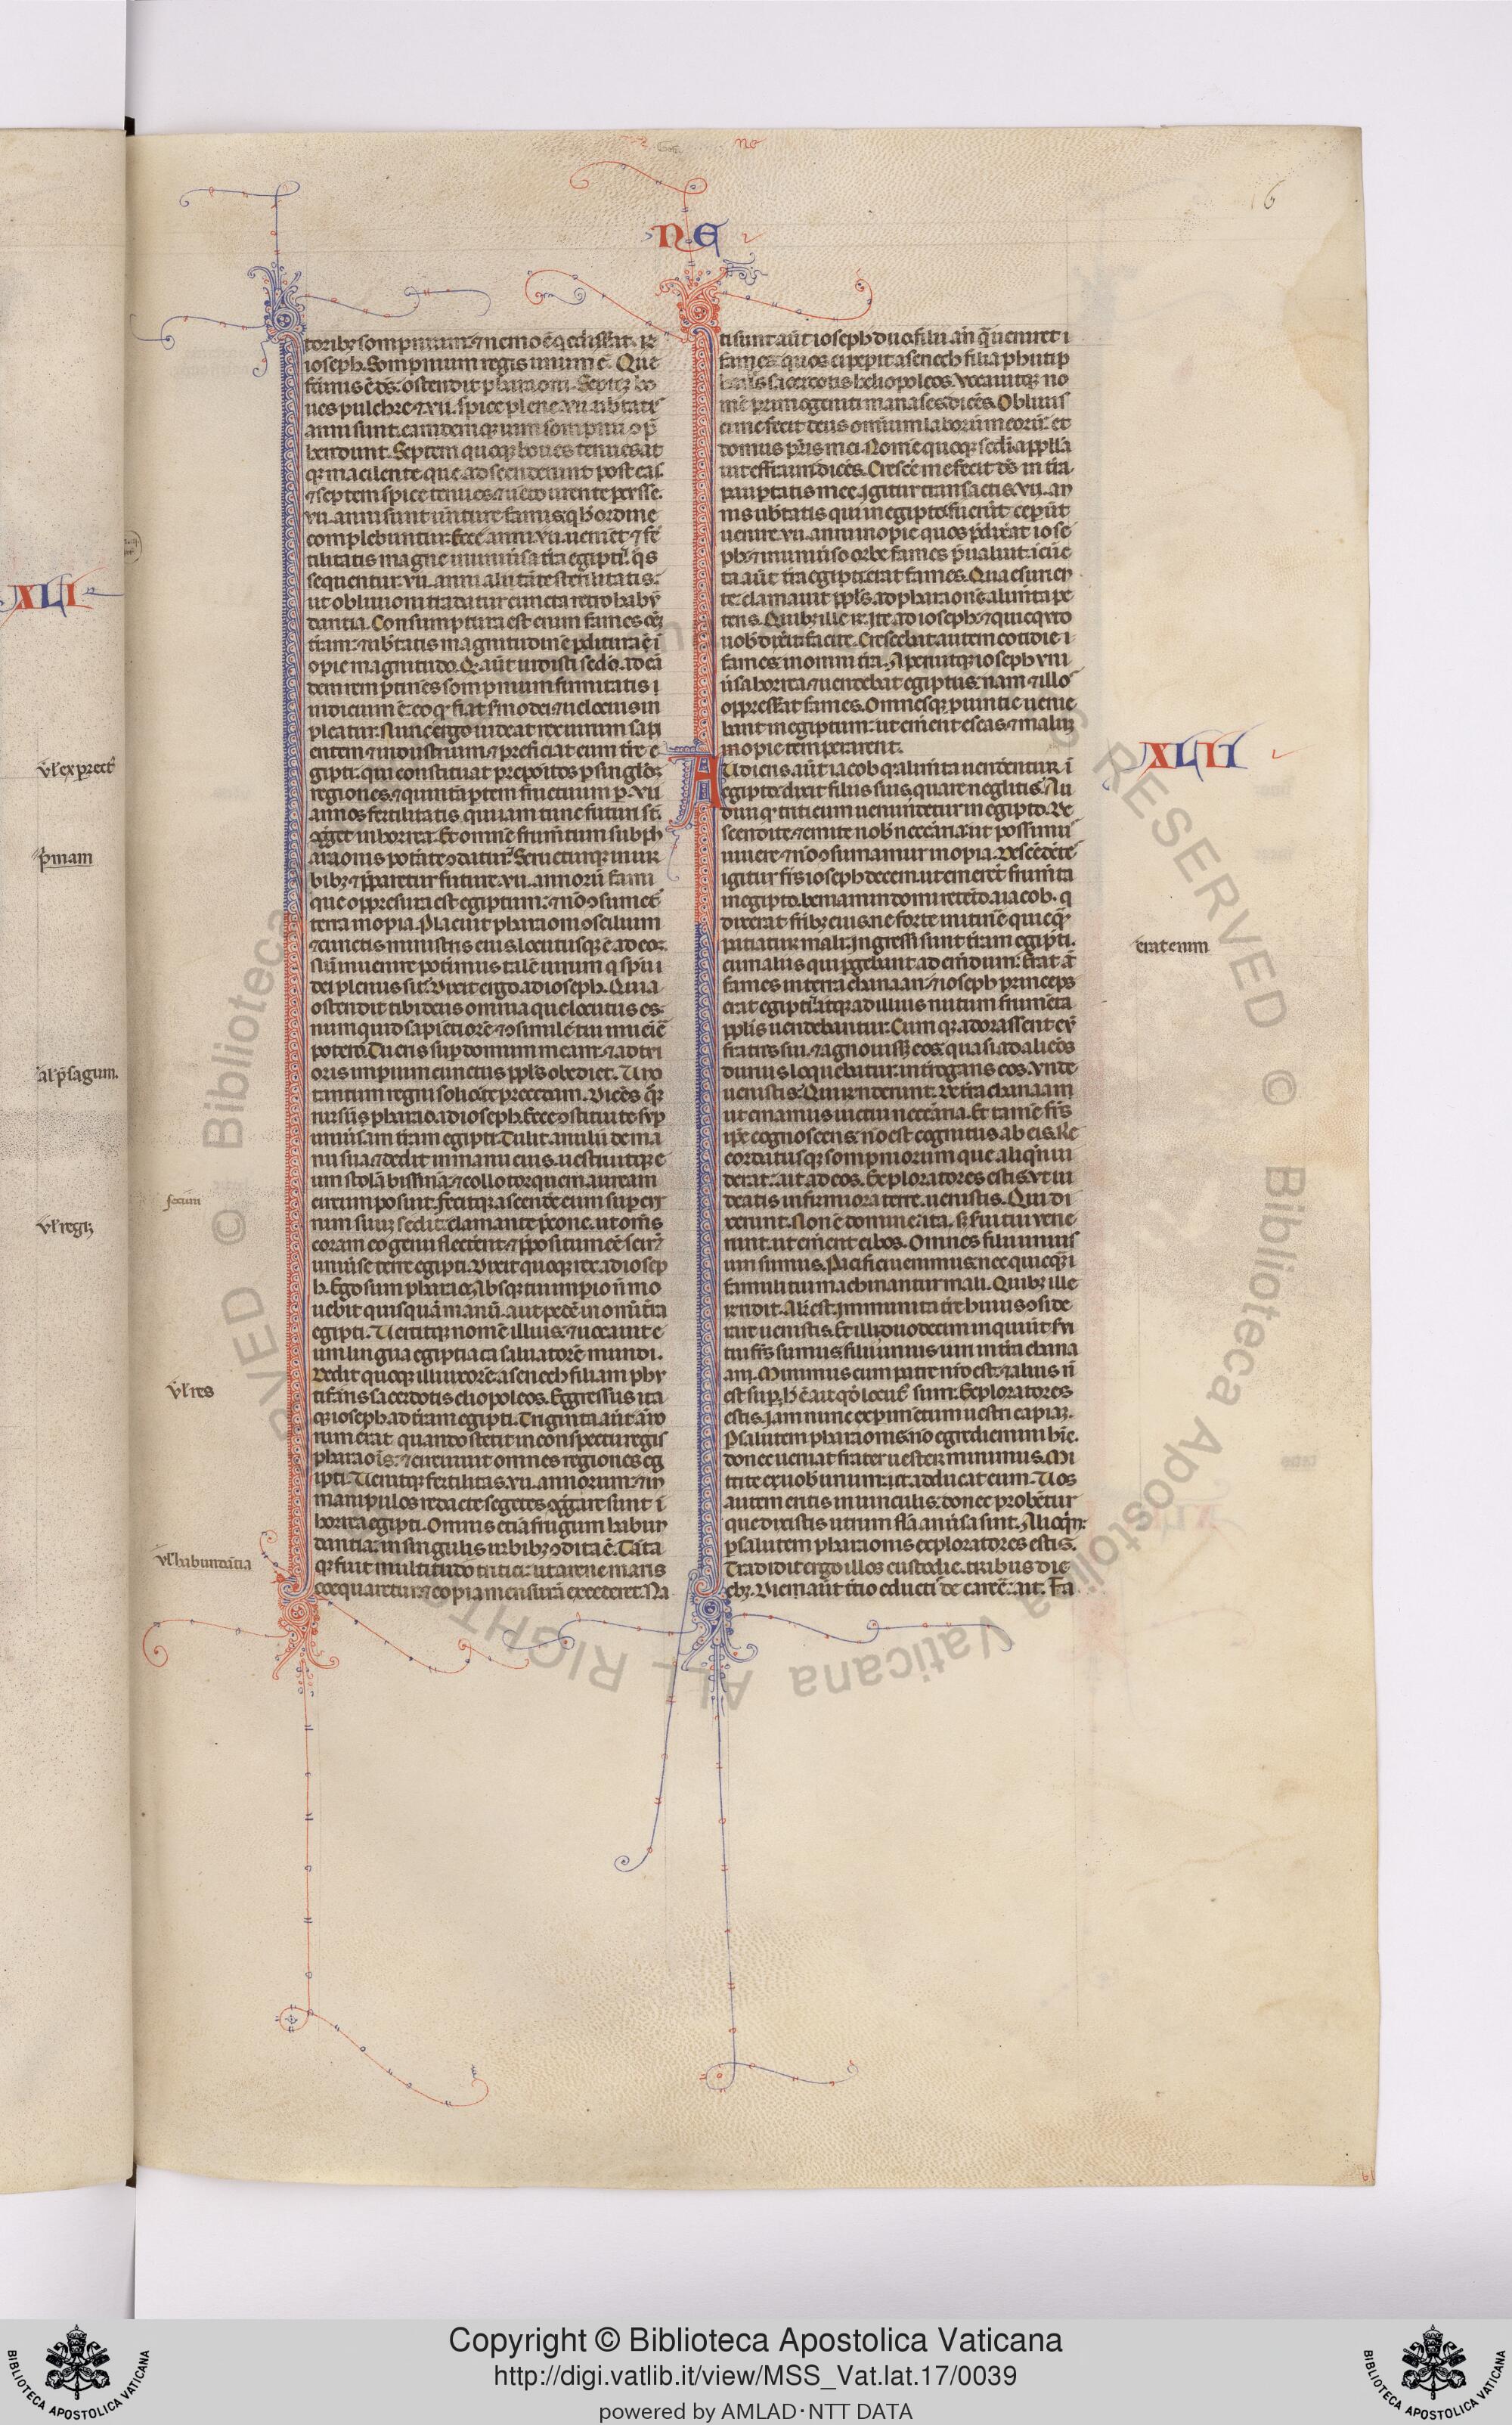 XLI
ne
16
toribus sompnium. ⁊ nemo ē q̇ edisserat. R̄
ioseph. Sompnium regis unum ē. Que
facturus ē ds̄. ostendit pharaoni. Septē bo
ues pulchre. ⁊ .vii. spice plene .vii. ub̄tatis
anni sunt. eandemq; uim sompnii cōp̄
hendunt. Septem quoq; boues tenues at
q; macilente que ascenderunt post eas.
⁊ septem spice tenues ⁊ uēto urente percusse.
vii. anni sunt uenture famis. q̇ h̄ ordine
complebuntur. Ecce anni .vii. uenient ⁊ fer
tilitatis magne in uniūsa t̄ra egipti. q̇s
sequentur .vii. anni alii tāte sterilitatis.
ut obliuioni tradatur cuncta retro habun
dantia. Consumptura est enim fames om̄ē
t̄ram. ⁊ ub̄tatis magnitudinē p̄ditura ē i
opie magnitudo. Q̇ aūt uidisti sc̄do ad eā
dem rem ptinēs sompnium firmitatis i
indicium ē. eo q̇ fiat s̄mo dei. ⁊ uelocius im
pleatur. Nunc ergo uideat rex uirum sapi
entem ⁊ industrium. ⁊ preficiat eum t̄re e
gipti. qui constituat prepōitos p singl̄as
regiones. ⁊ quintā ptem fructuum p .vii.
annos fertilitatis. qui iam nunc futuri st̄.
ɔgreget in horrea. Et omnē frum̄tum sub ph
araonis potestate ɔdatur. Serueturq; in ur
bibz. ⁊ p̄paretur future .vii. annorū fami
que oppressura est egiptum. ⁊ nō ɔsumet̄
terra inopia. Placuit pharaoni ɔsilium
⁊ cunctis ministris eius. locutusq; ē ad eos.
Nū inuenire poterimus talē uirum. q sp̄u
dei plenus sit? Dixit ergo ad ioseph. Quia
ostendit tibi deus omnia que locutus es.
numquid sapientiorē ⁊ ɔsimilē tui inuenire
potero. Tu eris sup domum meam. ⁊ ad tui
oris imperium cunctus ppl̄s obediet. Uno
tantum regni solio te precedam. Dicēs q̇z
rursus pharao ad ioseph. Ecce ɔstitui te sup
uniūsam t̄ram egipti. Tulit anulū de ma
nu sua. ⁊ dedit in manu eius. uestiuitq; e
um stola bissina. ⁊ collo torquem auream
circumposuit. Fecitq; ascendere eum super cur
rum suum sc̄dm. clamante precone. ut om̄s
coram eo genu flecterent. ⁊ p̄positum eē scirēt
uniūse terre egipti. Dixit quoq; rex ad iosep
h. Ego sum pharao. Absq; tuo imperio n̄ mo
uebit quisquam manū. aut pedē in om̄i t̄ra
egipti. Uertitq; nomē illius. ⁊ uocauit e
um lingua egiptiaca saluatorē mundi.
Dedit quoq; illi uxorē asenech filiam phu
tifaris sacerdotis eliopoleos. Egressus ita
q; ioseph ad t̄ram egipti. Triginta aūt an̄o
rum erat quando stetit in conspectu regis
pharaonis. ⁊ circuiuit omnes regiones eg
ipti. Uenitq; fertilitas .vii. annorum. ⁊ in
manipulos redacte segetes ɔgregate sunt i
horrea egipti. Omnis etiā frugum habun
dantia. in singulis urbibz ɔdita ē. Tāta
q; fuit multitudo tritici. ut arene maris
coequaretur. ⁊ copia mensurā excederet. Na
ti sunt aūt ioseph duo filii an̄ q̄ ueniret i
fames. quos ei pepit asenech filia phutip
haris sacerdotis heliopoleos. Uocauitq; no
mē primogeniti manases dicēs. Obliuis
ci me fecit deus omnium laborum meorū. et
domus patris mei. Nomē quoq; sc̄di appella
uit effraim dicēs. Crescē me fecit ds̄ in t̄ra
paupertatis mee. Igitur transactis .vii. an
nis ub̄tatis qui in egipto fuerūt. cepūt
uenire .vii. anni inopie quos p̄dixerat iose
ph. ⁊ in uniūso orbe fames p̄ualuit. i cūc
ta aūt t̄ra egipti erat fames. Qua esurien
te. clamauit ppl̄s ad pharaonē alim̄ta pe
tens. Quibz ille r̄. Ite ad ioseph. ⁊ quicq̇d
uobis dixerit facite. Crescebat autem cotidie i
fames in omni t̄ra. Aperuitq; ioseph uni
ūsa horrea ⁊ uendebat egiptiis. nam ⁊ illos
oppresserat fames. Omnesq; prouintie uenie
bant in egiptum. ut emerent escas. ⁊ malum
inopie temperarent.
XLII
Audiens aūt iacob q̇ alim̄ta uenderentur i
egipto. dixit filiis suis. quare neglitis? Au
diui q̇ triticum uenundetur in egipto. De
scendite. ⁊ emite nobis necessaria. ut possimus
uiuere. ⁊ nō ɔsumamur inopia. Descēdētes
igitur fr̄s ioseph decem. ut emerent frum̄ta
in egipto. beniamin domi retento a iacob. q
dixerat fr̄ibz eius. ne forte in itinere quicq̄
patiatur mali. Ingressi sunt t̄ram egipti.
cum aliis qui pgebant ad emendum. Erat aūt
fames in terra chanaan. ⁊ ioseph princeps
erat egipti. atq; ad illius nutum frumēta
ppl̄is uendebantur. Cum q; adorassent eum
fratres sui. ⁊ agnouisset eos. quasi ad alienos
durius loquebatur. interrogans eos. Unde
uenistis? Qui r̄nderunt. De t̄ra chanaam
ut emamus uictui necessaria. Et tamē fr̄s
ipse cognoscens. nō est cognitus ab eis. Re
cordatusq; sompniorum que aliq̇n ui
derat. ait ad eos. Exploratores estis. ut ui
deatis infirmiora terre. uenistis. Qui di
xerunt. Non ē domine ita. s; serui tui uene
runt. ut emerent cibos. Omnes filii unius
uiri sumus. Pacifici uenimus. nec quicq̄ i
famuli tui machinantur mali. Quibz ille
r̄ndit. Alit̄ est. Immunita t̄re huius ɔside
rare uenistis. Et illi. duodecim inquiūt serui
tui fr̄s sumus. filii unius uiri in t̄ra chana
am. Minimus cum patre nr̄o est. ⁊ alius n̄
est sup. H̄ ē ait qd̄ locutus sum. Exploratores
estis. Iam nunc experimētum uestri capiam.
P salutem pharaonis. nō egrediemini hinc.
donec ueniat frater uester minimus. Mi
tite ex uobis unum. ut adducat eum. Uos
autem eritis in uinculis. donec probētur
que dixistis utrum falsa an uera sint. Alioq̇n.
p salutem pharaonis exploratores estis.
Tradidit ergo illos custodie. tribus die
bz. Die aūt t̄tio eductis de carcere. ait. Fa
erat enim
secum
ul̄ regis
ul̄ res
ul̄ habundātia
Copyright © Biblioteca Apostolica Vaticana
http://digi.vatlib.it/view/MSS_Vat.lat.17/0039
powered by AMLAD·NTT DATA
BIBLIOTECA APOSTOLICA VATICANA
BIBLIOTECA APOSTOLICA VATICANA